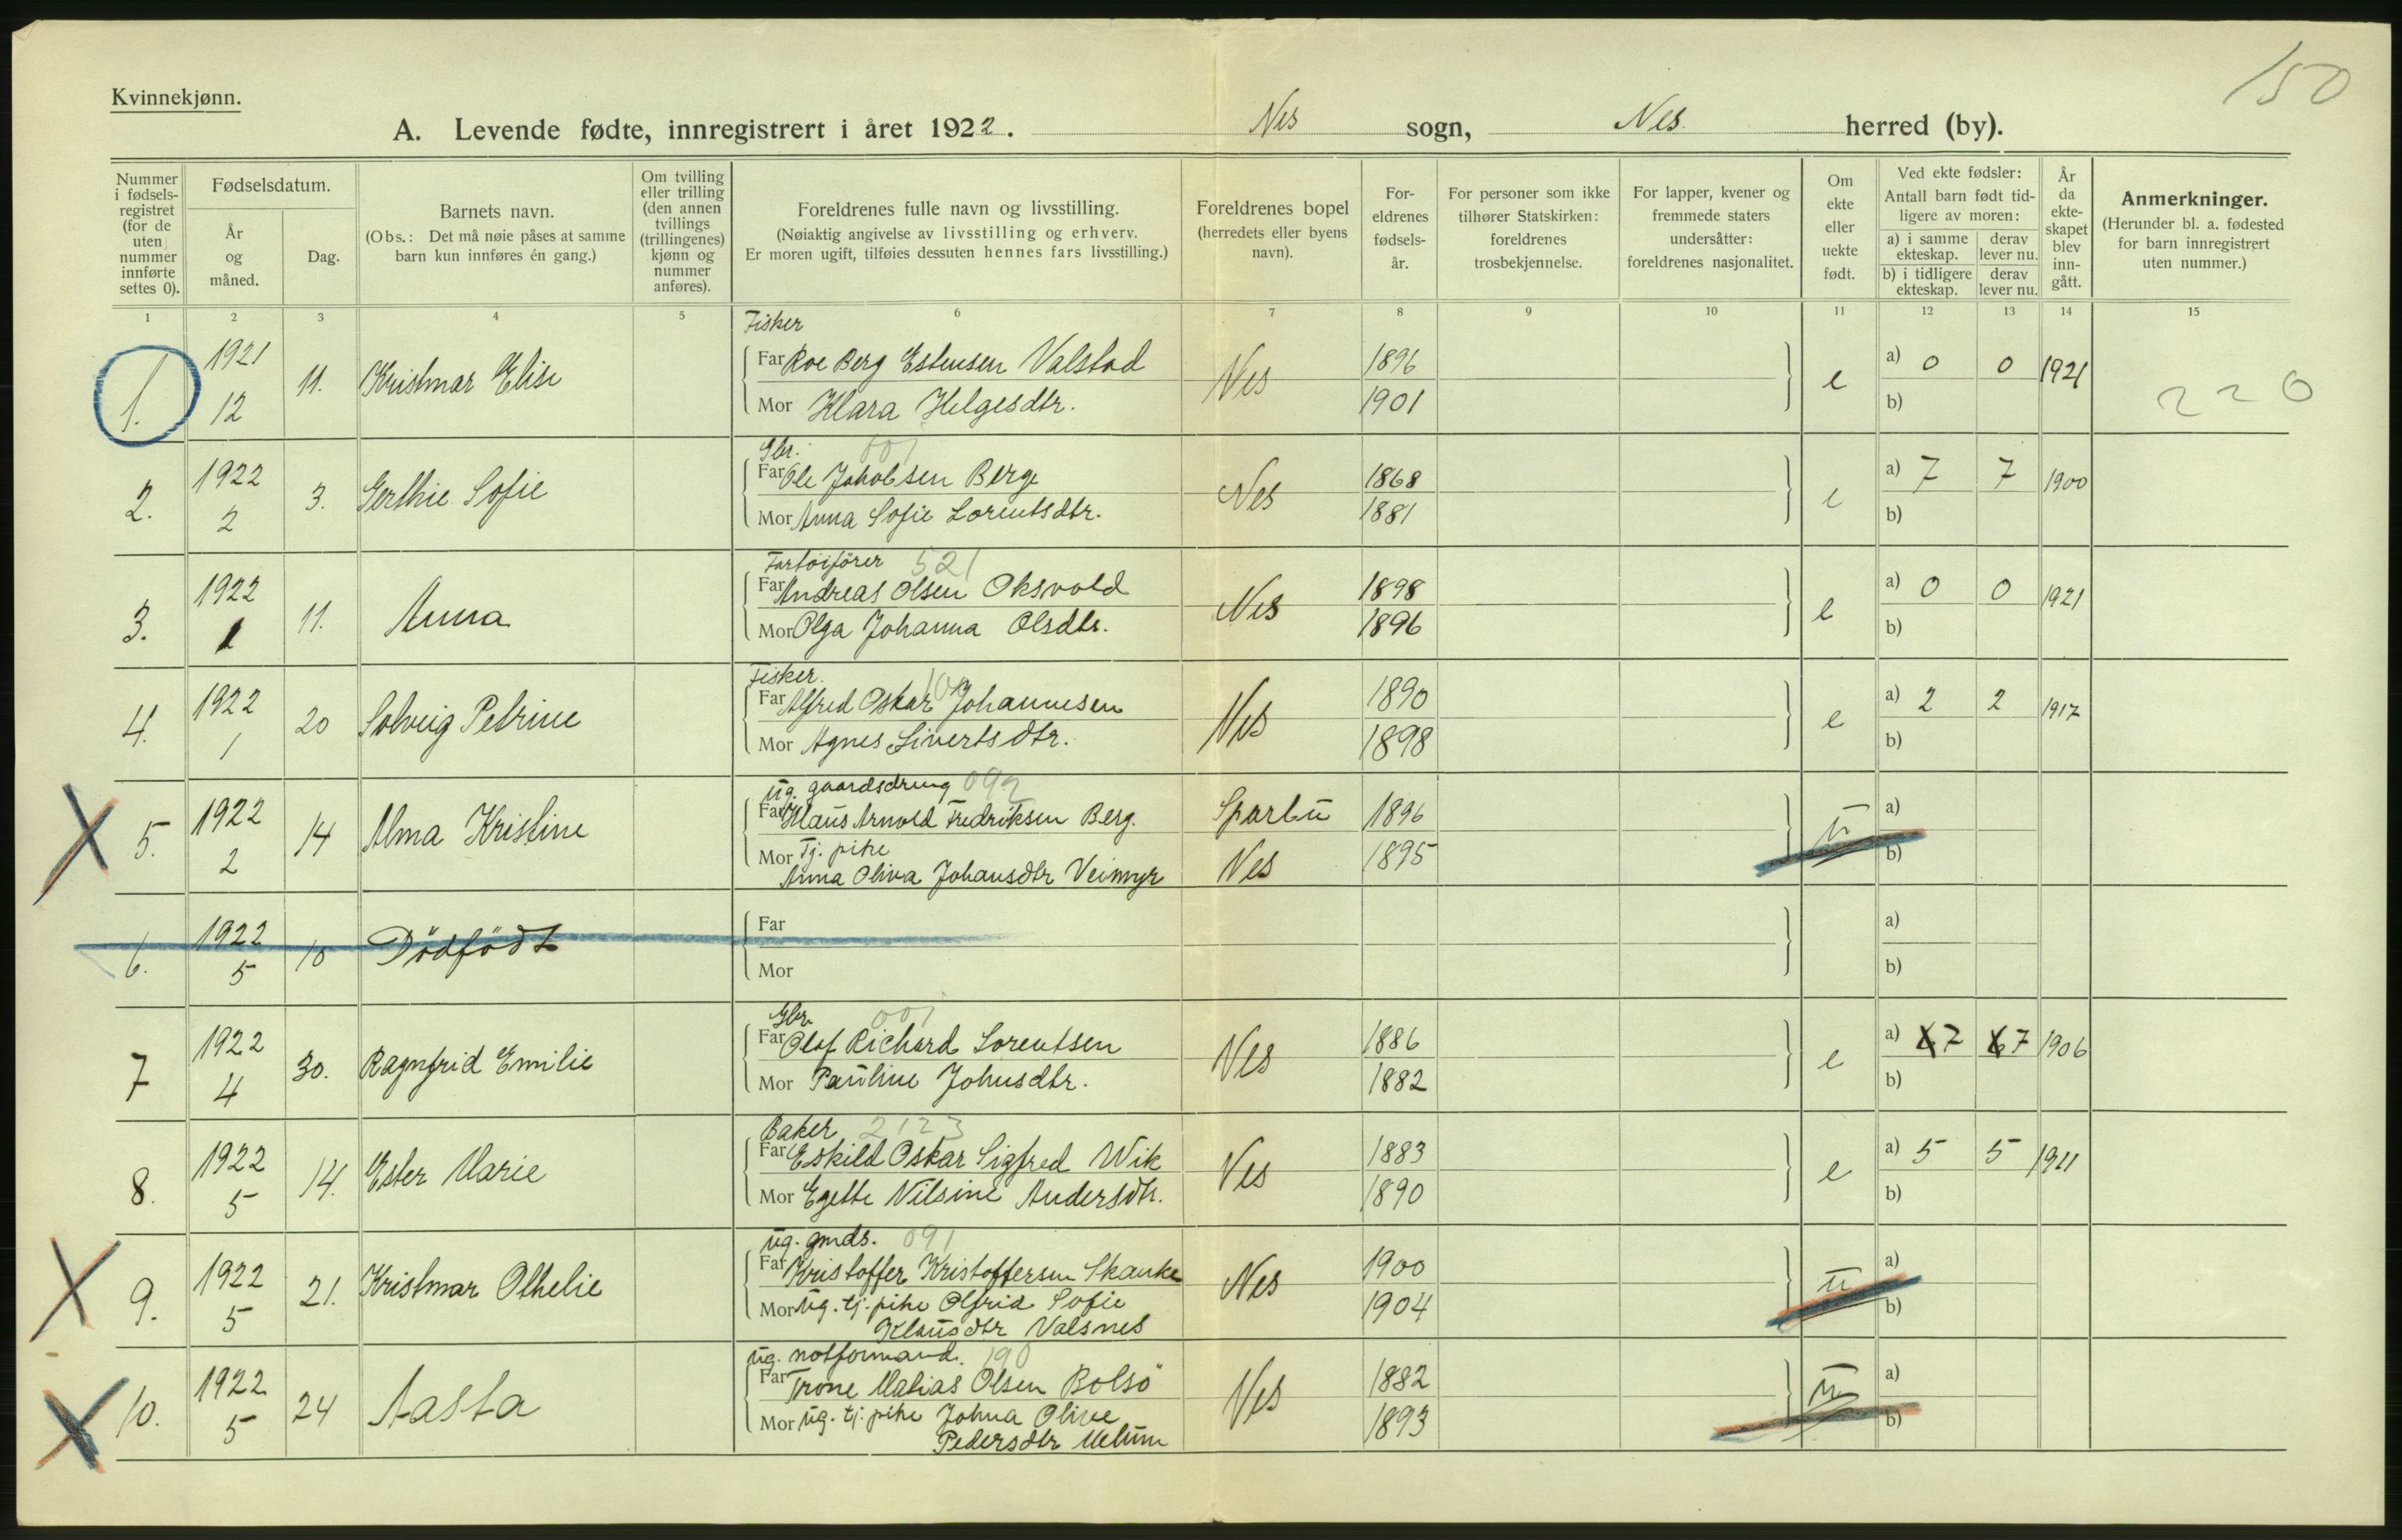 150
Kvinnekjønn.
A. Levende fødte, innregistrert i året 1922. Nes sogn, Nes herred (by).
Nummer i fødsels-registret (for de uten nummer innførte settes 0).
Fødselsdatum.
År og måned.
Dag.
Barnets navn.
(Obs.: Det må nøie påses at samme barn kun innføres én gang.)
Om tvilling eller trilling (den annen tvillings (trillingenes) kjønn og nummer anføres).
Foreldrenes fulle navn og livsstilling.
(Nøiaktig angivelse av livsstilling og erhverv.
Er moren ugift, tilføies dessuten hennes fars livsstilling.)
Foreldrenes bopel (herredets eller byens navn).
For-eldrenes fødsels-år.
For personer som ikke tilhører Statskirken: foreldrenes trosbekjennelse.
For lapper, kvener og fremmede staters undersåtter: foreldrenes nasjonalitet.
Om ekte eller uekte født.
Ved ekte fødsler:
Antall barn født tid-ligere av moren:
a) i samme ekteskap.
derav lever nu.
b) i tidligere ekteskap.
derav lever nu.
År da ekte-skapet blev inn-gått.
Anmerkninger.
(Herunder bl. a. fødested for barn innregistrert uten nummer.)
1 2 3 4 5 6 7 8 9 10 11 12 13 14 15
Fisker
1. 1921 12 11. Kristmar Elise
Far Roe Berg Estensen Valstad Nes 1896 e a) 0 0 1921
Mor Klara Helgesdtr. 1901 b)
220
Gbr. 001
2. 1922 2 3. Gerthie Sofie
Far Ole Jakobsen Berge Nes 1868 e a) 7 7 1900
Mor Anna Sofie Lorentsdtr. 1881 b)
Fartøifører 521
3. 1922 1 11. Anna
Far Andreas Olsen Oksvold Nes 1898 e a) 0 0 1921
Mor Olga Johanna Olsdtr. 1896 b)
Fisker.
4. 1922 1 20 Solveig Petrine
Far Alfred Oskar Johannesen Nes 1890 e a) 2 2 1917
Mor Agnes Sivertsdtr. 1898 b)
ug. gaardsdreng 092
5. 1922 2 14 Alma Kristine
Far Klaus Arnold Fredriksen Berg. Sparbu 1896 u a)
Mor Tj. pike Nes 1895 b)
Anna Oliva Johansdtr Veimyr
6. 1922 5 10 Dödfödt
Far a)
Mor b)
Gbr 001
7 1922 4 30. Ragnfrid Emilie
Far Olaf Richard Lorentsen Nes 1886 e a) 7 7 1906
Mor Pauline Johnsdtr. 1882 b)
Baker 2123
8. 1922 5 14. Ester Marie
Far Eskild Oskar Sigfred Wik Nes 1883 e a) 5 5 1911
Mor Egette Nilsine Andersdtr. 1890 b)
ug. gmds. 091
9. 1922 5 21. Kristmar Othelie
Far Kristoffer Kristoffersen Skanke Nes 1900 u a)
Mor ug. tj. pike Olfrid Sofie 1904 b)
Klausdtr Valsnes
ug. notformand. 190
10. 1922 5 24 Aasta
Far Trone Matias Olsen Bolsö Nes 1882 u a)
Mor ug. tj. pike Johna Olive 1893 b)
Pedersdtr Melum